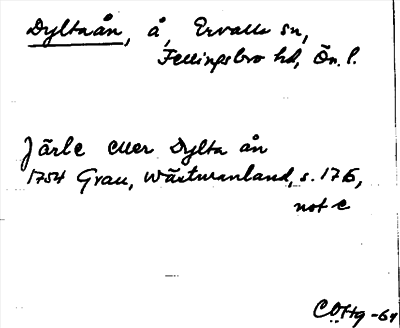 Dyltaån, å, Ervalla sn,
Fellingsbro hd, Ön. l.
Järle eller Dylta ån
1754 Grau, Wästmanland, s. 176,
not c